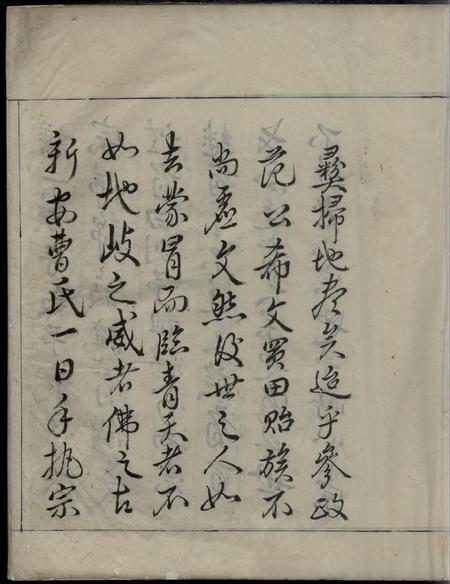 彝掃地尽矣迨乎參政
范公希文買田貽族不
尚虛文然後世之人如
去蒙冒而臨青天者不
如地歧之威者佛之
新安曹氏一日手執宗